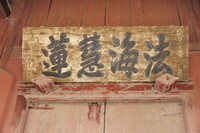 法海慧蓮